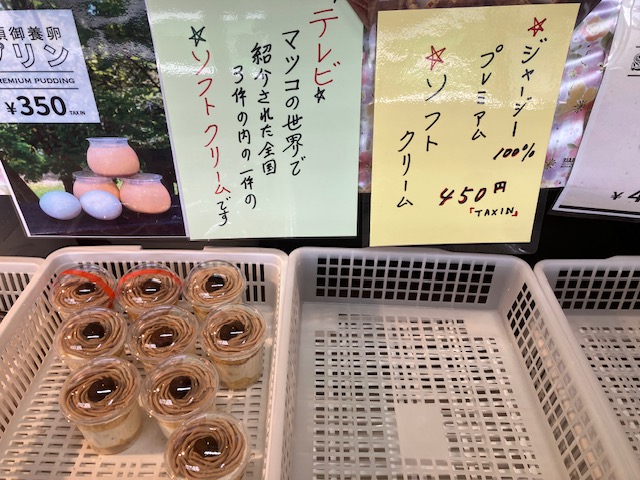 御養卵
プリン
PREMIUM PUDDING
¥350 TAX IN
テレビ☆
マツコの世界で
紹介された全国
3件の内の一件の
☆ソフトクリームです
☆ジャージー100%
プレミアム
☆ソフト
クリーム
450円
「TAX IN」